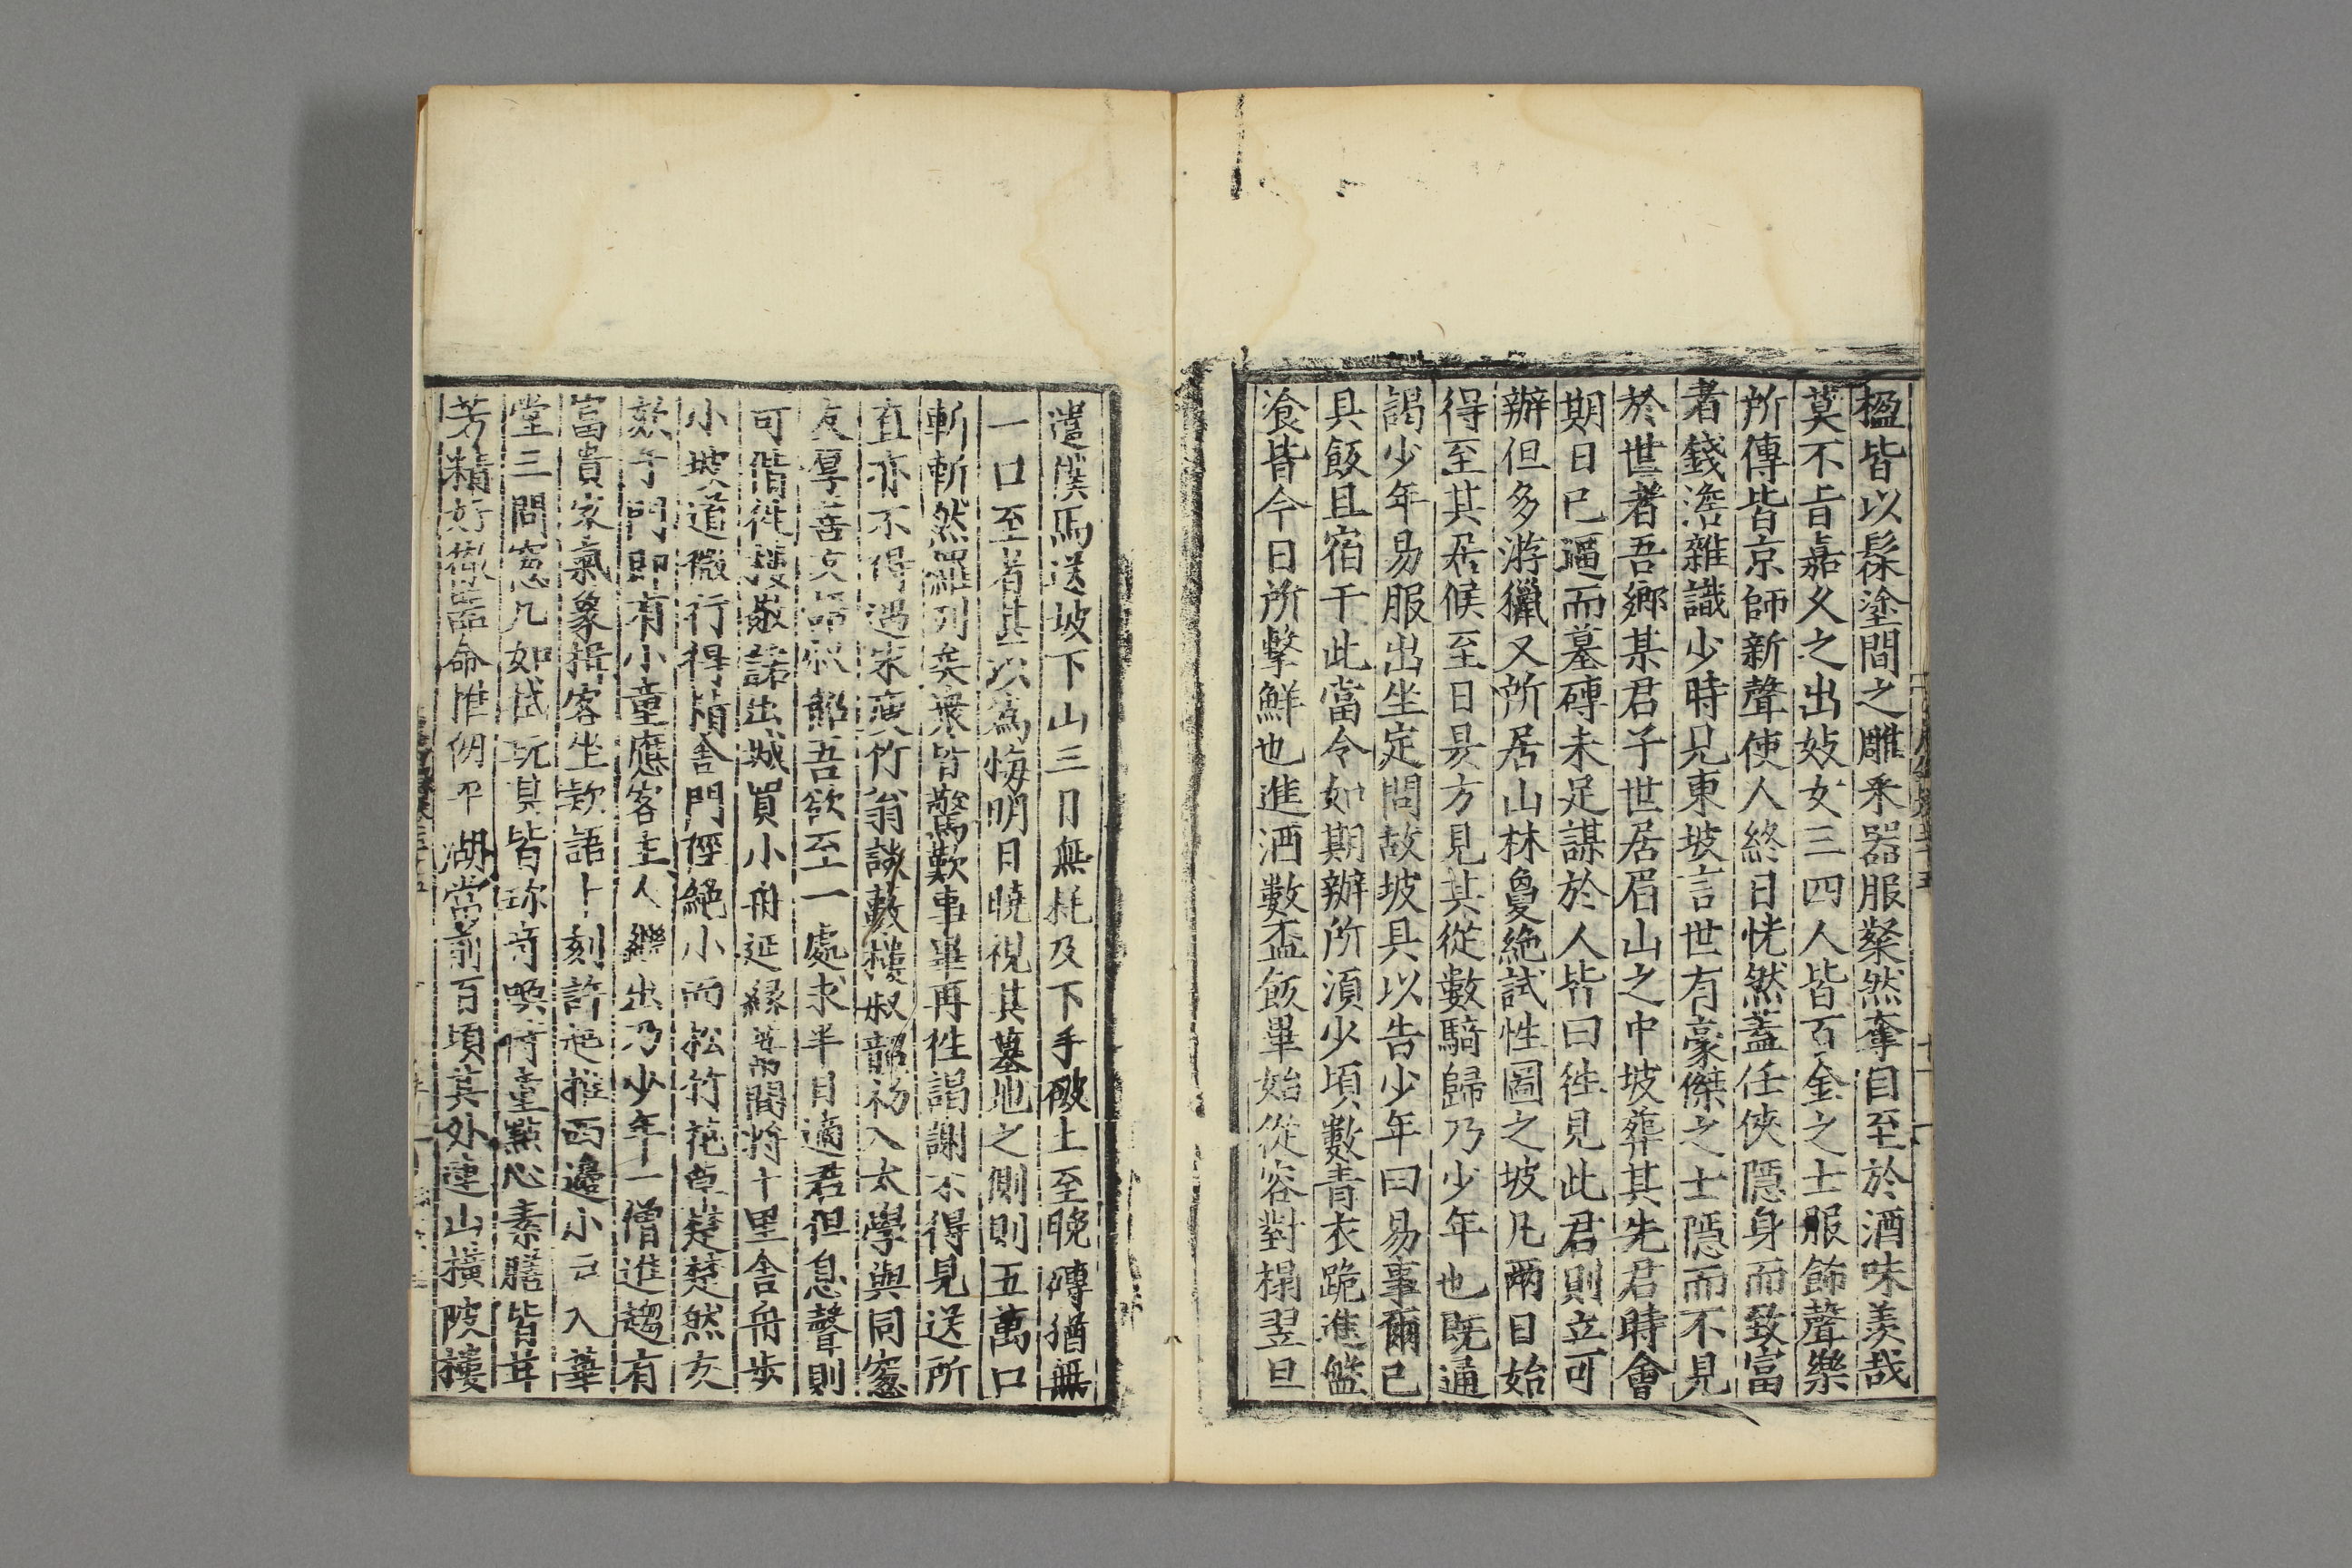 楹皆以髹塗間之雕釆器服粲然奪目至於酒味羡哉
莫不旨嘉乂之出妓女三四人皆百金之士服飾聲樂
所傳皆京師新聲使人終日恍然蓋任俠隱身而致富
者錢澹雜識少時見東坡言世有豪傑之士隱而不見
於世者吾鄉某君子世居眉山之中坡葬其先君時會
期日已逼而墓磚未足謀於人皆曰徃見此君則立可
辦但多游獵又所居山林敻絶試性圖之坡凡兩日始
得至其居候至日昃方見其從數騎歸乃少年也既通
謁少年易服出坐定問故坡具以告少年曰易事爾已
具飯且宿于此當令如期辦所須少頃數青衣跪進盤
飡皆今日所擊鮮也進酒數盃飯畢始從容對榻翌旦
遣僕馬送坡下山三日無耗及下手破土至晚磚猶無
一口至者甚以為悔明日曉視其墓地之側則五萬口
斬斬然羅列矣衆皆驚歎事畢再徃謁謝不得見送所
直亦不得過宋萸竹翁談藪樓叔韶初入太學與同窻
友厚善友 叔韶吾欲至一處求半日適君但息聲則
可偕徃樓敬諾出城買小舟延縁葦間將十里舍舟歩
小坡道微行得精舍門徑絶小而松竹花草楚楚然友
欵于門即有小童應客主人繼出乃少年一僧進趨有
富貴家氣象揖客坐欵語十刻許起推西邊小戸入華
堂三間窻几如拭玩具皆珍奇喚侍童點心素膳皆甘
芳精好撤器命推 平湖當前百頃其外連山橫陂樓